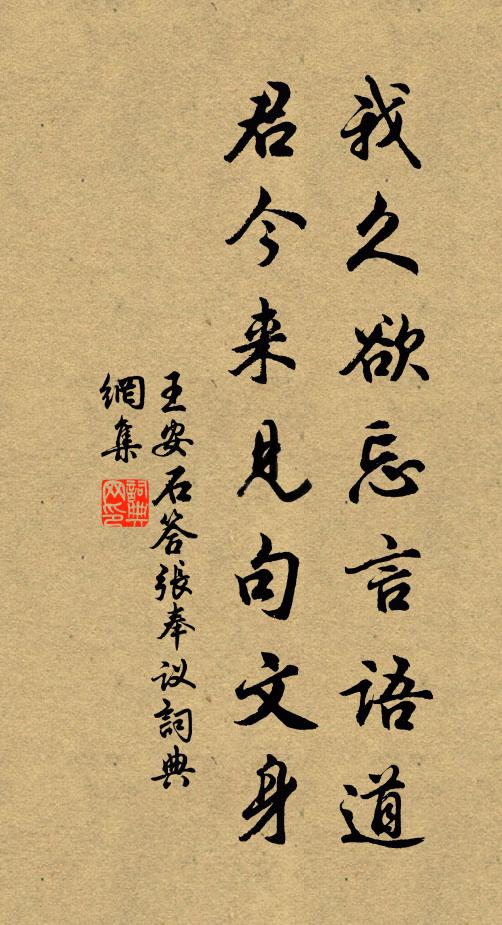 我久欲忘言语道
君今来见句文身
王安石答張奉议詞典
網集
詞典
网印